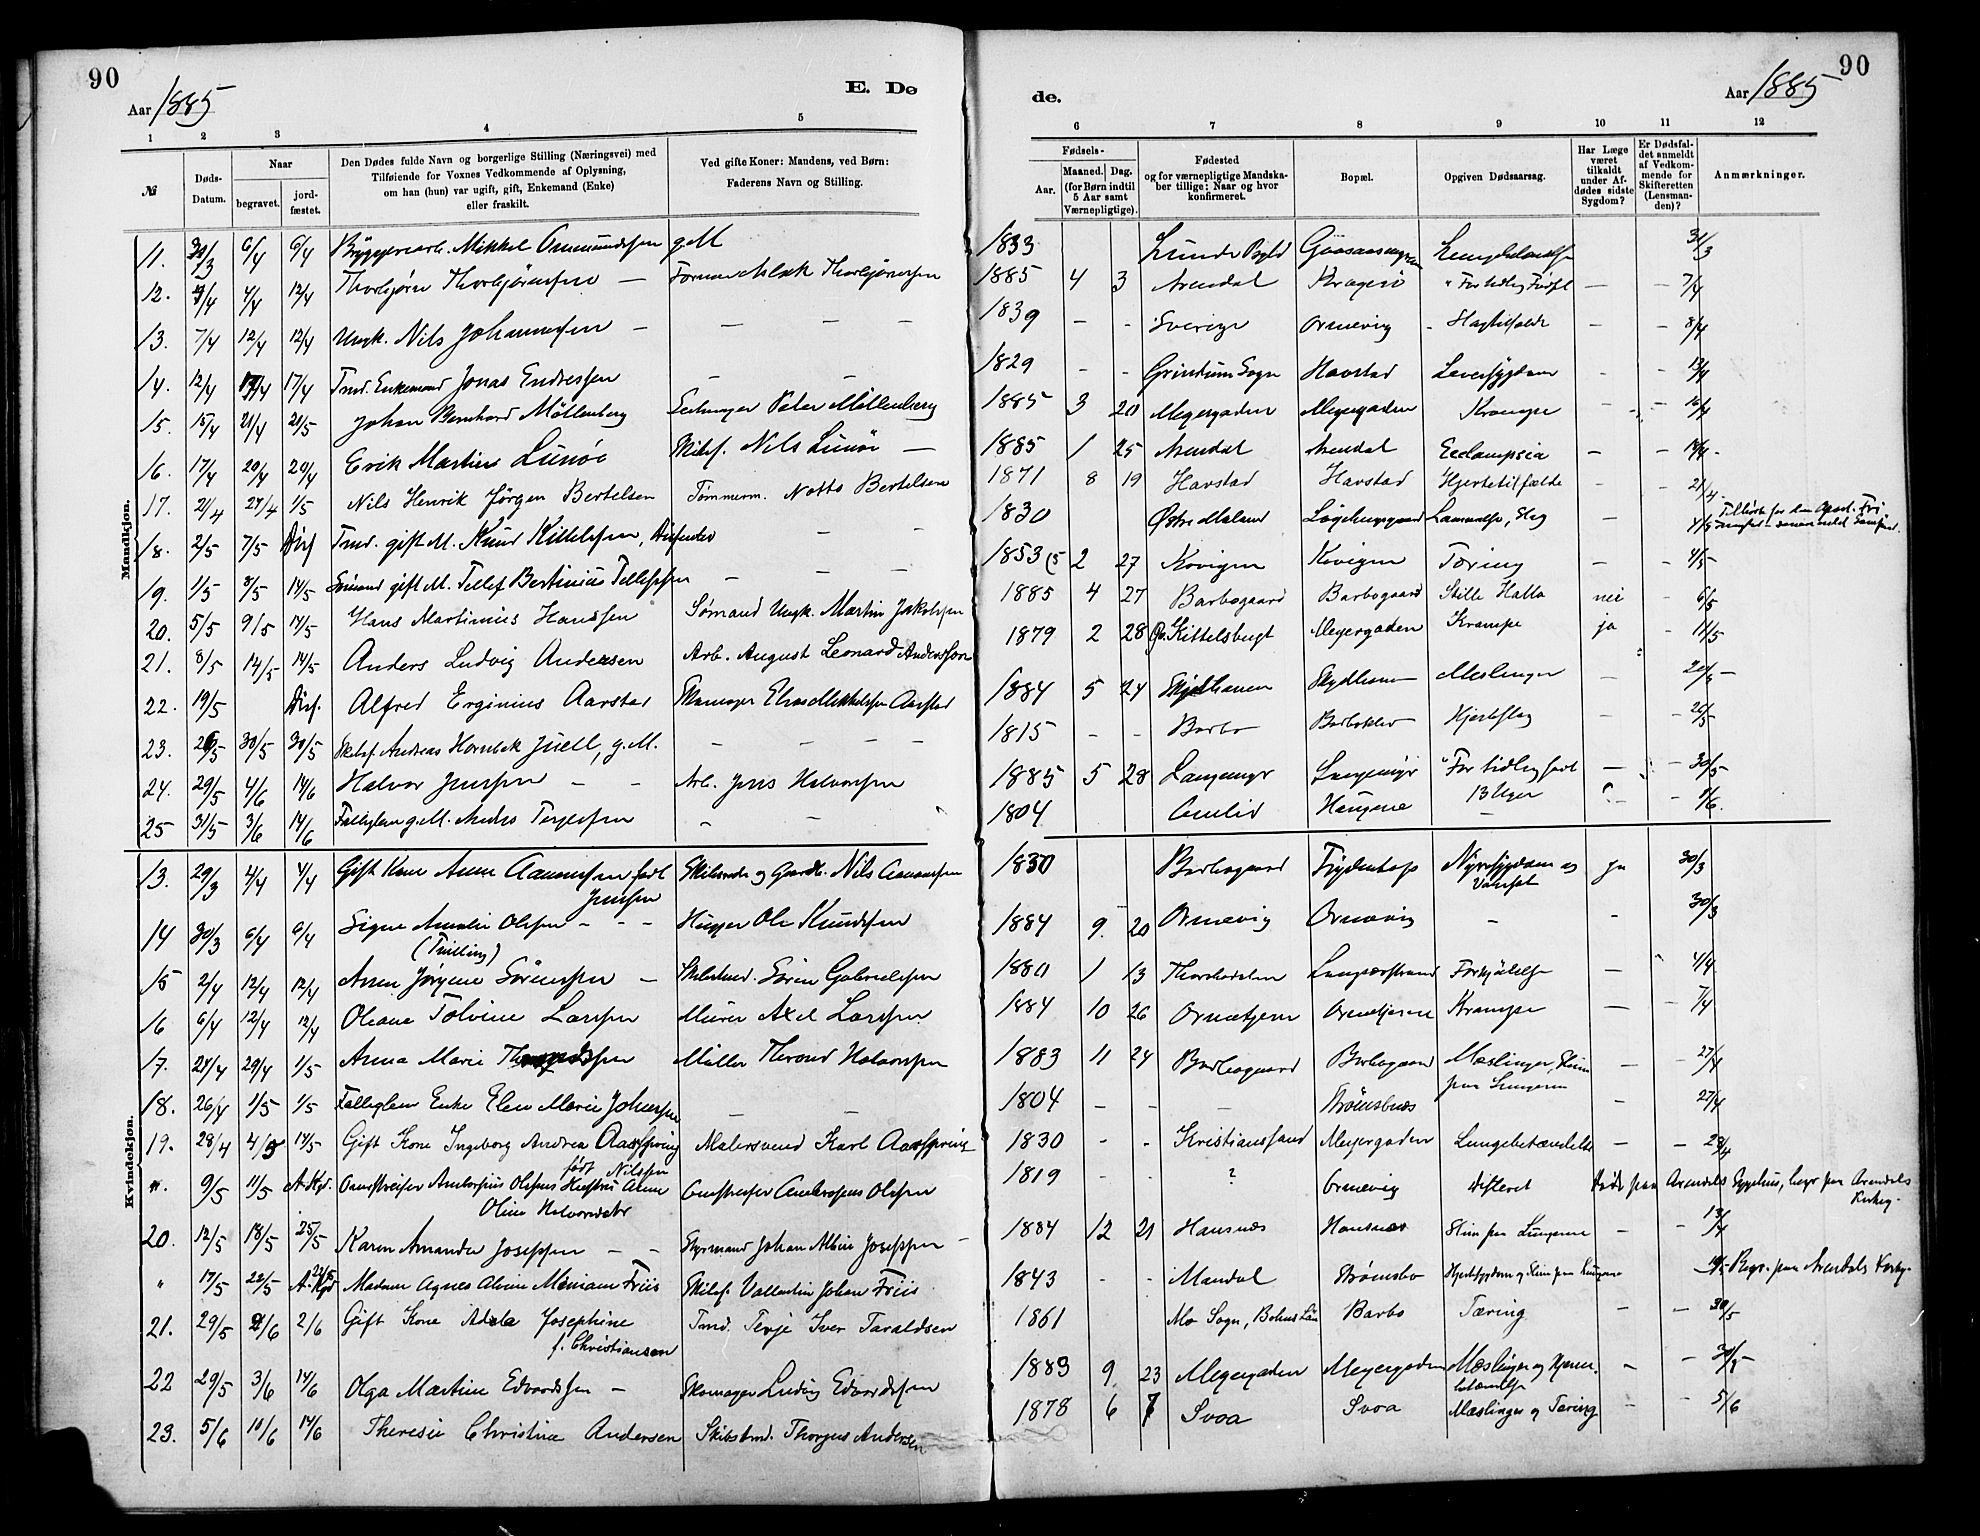 90
Aar 1885
E. Dø
1 2 3 4 5
№
Døds-Datum.
Naar
begravet.
jordfæstet.
Den Dødes fulde Navn og borgerlige Stilling (Næringsvei) med
Tilføiende for Voxnes Vedkommende af Oplysning,
om han (hun) var ugift, gift, Enkemand (Enke)
eller fraskilt.
Ved gifte Koner: Mandens, ved Børn:
Faderens Navn og Stilling.
Mandkjøn.
11. 30/3 6/4 6/4 Bryggerearb. Mikkel Omundssen g.M
12. 3/4 4/4 12/4 Thorbjørn Thorbjørnsen — Formand Aslak Thorbjørnsen
13. 7/4 12/4 12/4 Ungk. Nils Johannesen — — — —
14. 12/4 17/4 17/4 Tmd. Enkemand Jonas Endressen — —
15. 15/4 21/4 21/5 Johan Bernhard Möllenberg Peter Möllenberg
16. 17/4 20/4 20/4 Erik Martin Lunöe Skibsf. Nils Lunöe —
17. 21/4 27/4 1/5 Nils Henrik Jørgen Bertelsen Tømmerm. Notto Bertelsen
18. 2/5 7/5 Diss. Tmd. gift M. Knud Kittelsen, Dissenter — —
19. 1/5 8/5 14/5 Sømand gift M. Tellef Bertinius Tellefsen — — —
20. 5/5 9/5 14/5 Hans Martinius Hanssen Sømand Ungk. Martin Jakobsen
21. 8/5 14/5 14/5 Anders Ludvig Andersen Arb. August Leonard Anderssen
22. 19/5 Diss. Alfred Erginius Aarstad Skomager Elias Mikkelsen Aarstad
23. 26/5 30/5 30/5 Skibsf. Andreas Hornbek Juell, g.M. — — — —
24. 29/5 4/6 14/6 Halvor Jensen — — Arb. Jens Halvorsen
25 31/5 3/6 14/6 Fattiglem g.M. Anders Terjesen — —
Kvindekjøn.
13. 29/3 4/4 4/4 Gift Kone Anne Aanonsen født Skibsreder og Gaardbr. Nils Aanonsen
Jensen
14 30/3 6/4 6/4 Signe Amalie Olsen — — — Ole Knudsen
(Tvilling)
15 2/4 12/4 12/4 Anna Jørgine Sørensen — Skibstmd. Søren Gabrielsen
16 6/4 12/4 12/4 Oleane Tolvine Larsen Murer Axel Larsen
17. 24/4 29/4 1/5 Anna Marie Møller Thrond Halvorsen
18. 26/4 1/5 1/5 Fattiglem Enke Elen Marie Johnsen — —
19. 28/4 4/5 14/5 Gift Kone Ingeborg Andrea Aasspring Malersvend Karl Aasspring
født Nilssen
". 9/5 11/5 A. Kgd. Omstreifer Ambrosius Olsens Hustru Anne Omstreifer Ambrosius Olsen
Oline Halvorsdatter
20. 12/5 18/5 25/5 Karen Amanda Josefsen — — Styrmand Johan Albin Josefsen —
" 17/5 22/5 22/5 A. Kgd Madam Agnes Alvine Mariane Friis Skibsf. Vallentin Johan Friis
21. 29/5 2/6 2/6 Gift Kone Adela Josephine Tmd. Terje Iver Taraldsen
f. Christiansen
22 29/5 3/6 14/6 Olga Martine Edvardsen — Skomager Ludvig Edvardsen
23. 5/6 10/6 14/6 Theresie Christine Andersen Skibstmd. Thorgus Andersen
90
Aar 1885
de.
6 7 8 9 10 11 12
Fødsels-
Aar.
Maaned. Dag.
(for Børn indtil
5 Aar samt
Værnepligtige).
Fødested
og for værnepligtige Mandska-
ber tillige: Naar og hvor
konfirmeret.
Bopæl.
Opgiven Dødsaarsag.
Har Læge
været
tilkaldt
under Af-
dødes sidste
Sygdom?
Er Dødsfal-
det anmeldt
af Vedkom-
mende for
Skifteretten
(Lensman-
den)?
Anmærkninger.
1833 Lunde Bygd 31/3
1885 4 3 Arendal Kragerö "For tidlig Fødsel — — 7/4
1839 — - Sverige Ornevig - Slagtilfælde — — 8/4
1829 - - Grindum Sogn Havstad Leversygdom - - 13/4
1885 3 20 Meyergaden Meyergaden Krampe - — 16/4
1885 1 25 Arendal Arendal Eclampsia — — 18/4
1871 8 19 Havstad Havstad Hjertetilfælde - — 21/4
1830 Østre Moland 4/5 Tilhørte
1853 2 27 Kovigen Kovigen Tæring — — 4/5
1885 4 27 Barbogaard Barbogaard Stille Halla nei - 6/5
1879 2 28 Kittelsbugt Meyergaden Krampe ja - 11/5
1884 5 24 Skydthaven Meslinger — 20/5
1815 - - Barbo Hjerteslag — - 26/5
1885 5 28 Langemyr Langemyr "For tidlig født — - 30/5
1804 Omlid Haugene — - 1/6.
13 Uger
1830 Barbogaard Frydentop Nyresygdom og ja 30/3
Vatersot
1884 9. 20 Ornevig Ornevig - - 30/3
1880 1 13 Thorsdalen Langestrand Forkjølelse — 4/4
1884 10 26 Ornetjern Ornetjern Krampe — — 7/4
1883 11 24 Barbogaard Barbogaard Mæslinger, Slim — 27/4
paa Lungerne
1804 - — — Strömsbnæs - 27/4
1830 - - Kristianssand Meyergaden Lungebetændelse — — 28/4
1819 - - ? Ornevig Død paa Arendals Sygehus, begr. paa Arendals
Kirkeg.
1884 12 21 Hansnæs Hansnæs Slim paa Lungerne - - 13/4
1843 - - Mandal Strømsbo Hjertesygdom og Slim paa Lungerne Begr. paa Arendals Kirkeg.
1861 Mo Sogn, Bohus Län Barbo Tæring - — 30/5
1883 9 23 Meyergaden Meyergaden Mæslinger og Hjerne- - - 30/5
betændelse
1878 6 7 Svoa Svoa Mæslinger og Tæring - — 5/6